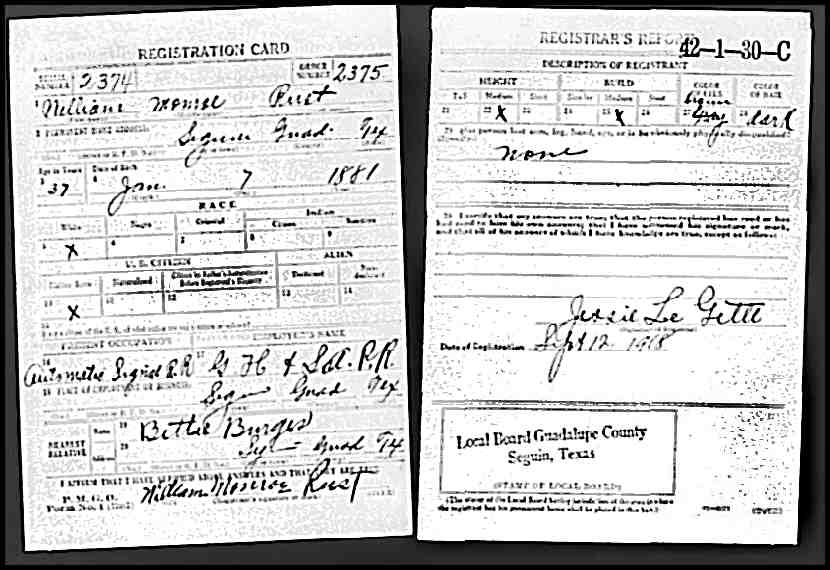 REGISTRATION CARD
SERIAL NUMBER 2374 ORDER NUMBER 2375
1 William Monroe Rust
2 PERMANENT HOME ADDRESS:
Seguin Guad. Tex
Age in Years Date of Birth
37 Jan. 7 1881
RACE
White Negro Oriental Indian
Citizen
5 X 6 7 8 9
U. S. CITIZEN ALIEN
Native Born Naturalized Citizen by Father's Naturalization Before Registrant's Majority Declarant Non-declarant
10 X 11 12 13 14
15
PRESENT OCCUPATION EMPLOYER'S NAME
Automatic Signal R.R. G H & S.A. R.R.
18 PLACE OF EMPLOYMENT OR BUSINESS:
Seguin Guad Tex
NEAREST RELATIVE Name 19 Bettie Burges
Address 20 Seguin Guad Tx
I AFFIRM THAT I HAVE VERIFIED ABOVE ANSWERS AND THAT THEY ARE TRUE
P. M. G. O.
Form No. 1 William Monroe Rust
REGISTRAR'S REPORT
42-1-30-C
DESCRIPTION OF REGISTRANT
HEIGHT BUILD COLOR OF EYES COLOR OF HAIR
Tall Medium Short Slender Medium Stout
21 22 X 23 24 25 X 26 27 Gray 28 dark
29 Has person lost arm, leg, hand, eye, or is he obviously physically disqualified?
none
30 I certify that my answers are true; that the person registered has read or has
had read to him his own answers; that I have witnessed his signature or mark,
and that all of his answers of which I have knowledge are true, except as follows:
Jessie Le Gette
Date of Registration Sept 12 1918
Local Board Guadalupe County
Seguin, Texas
(STAMP OF LOCAL BOARD)
(The stamp of the Local Board having jurisdiction of the area in which
the registrant has his permanent home shall be placed in this box.)